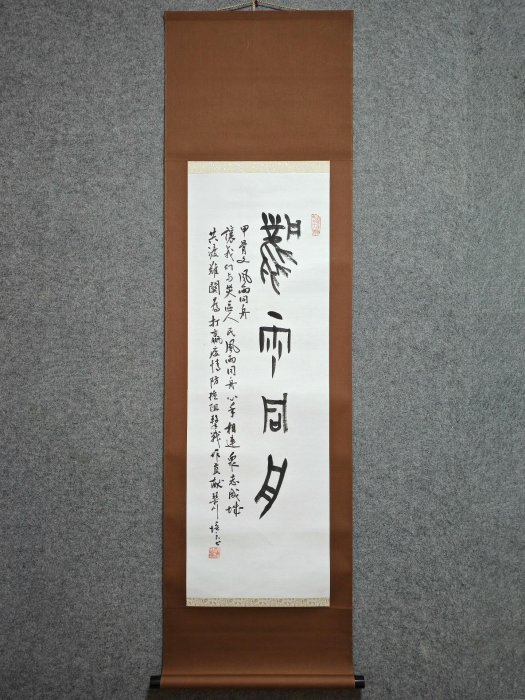 風雨同舟
甲骨文 風雨同舟
讓我们与英區人民風雨同舟 心手相連 眾志成城
共渡難關 為打贏疫情防控阻擊戰作貢獻